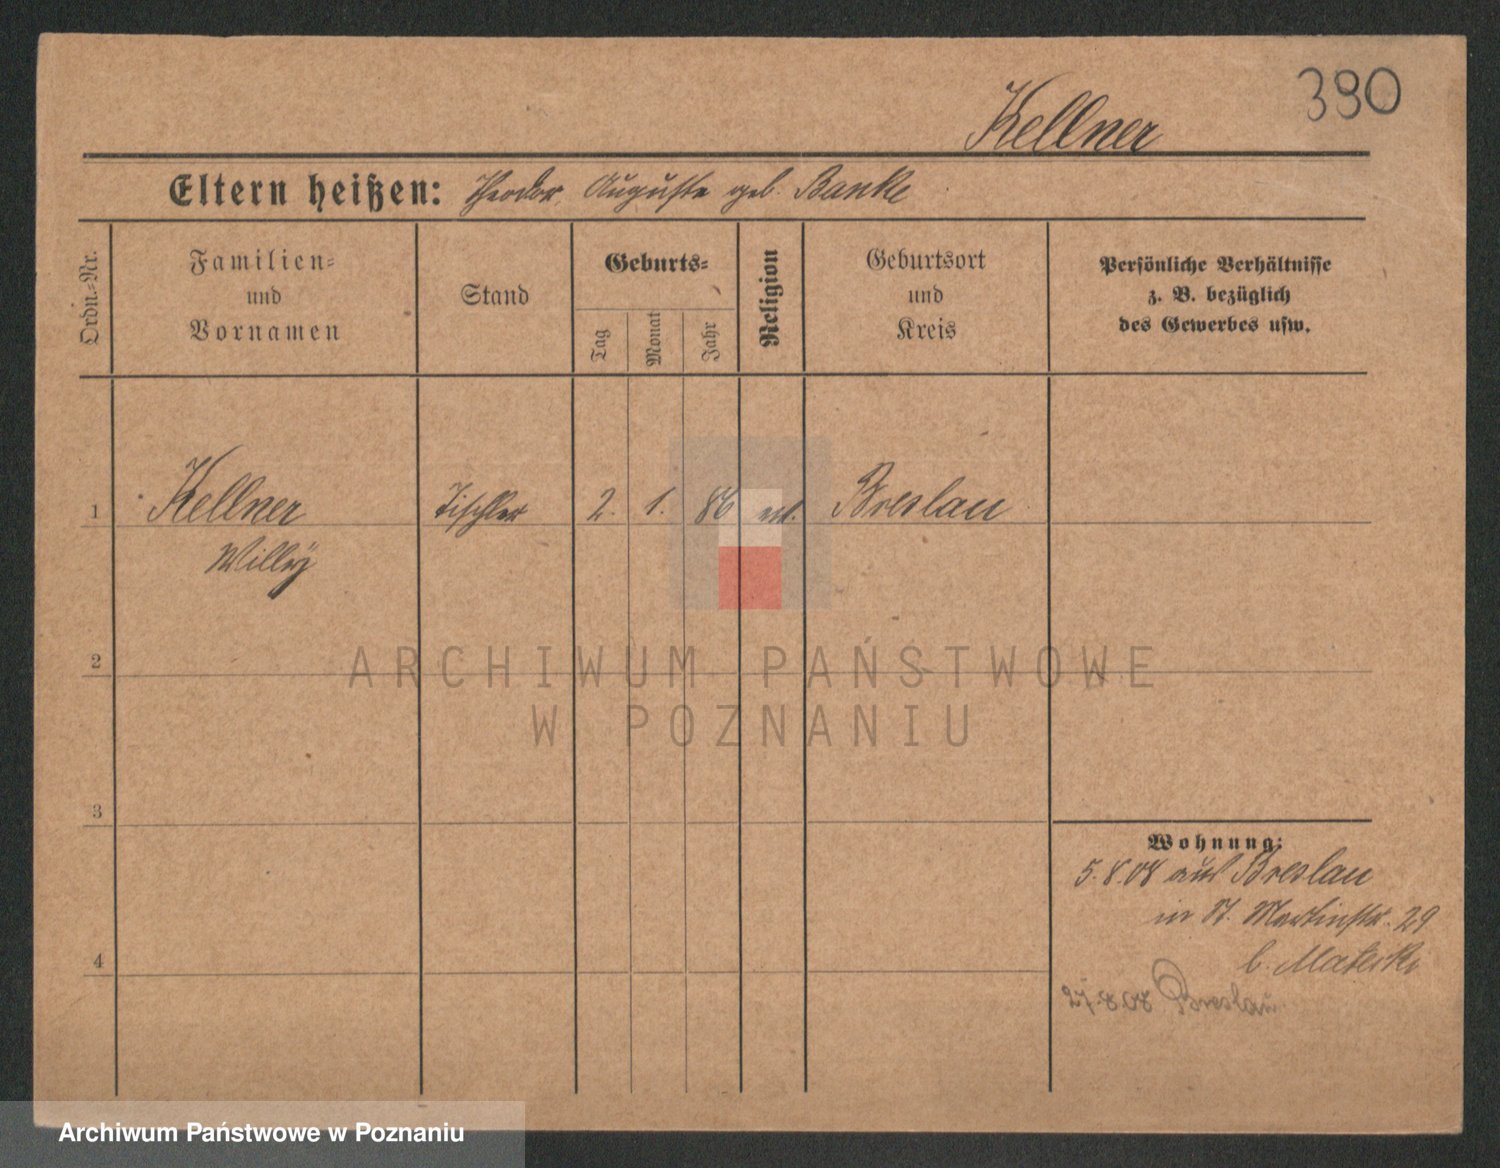 390
Kellner
Eltern heißen: Theodor, Auguste geb. Banke
Ordn.-Nr.
Familien-
und
Vornamen
Stand
Geburts-
Tag
Monat
Jahr
Religion
Geburtsort
und
Kreis
Persönliche Verhältnisse
z. B. bezüglich
des Gewerbes usw.
1 Kellner Tischler 2. 1. 86 ev. Breslau
Willy
2
ARCHIWUM PAŃSTWOWE
W POZNANIU
3
Wohnung:
5.8.08 aus Breslau
in St. Martinstr. 29
4
b. Materki
27.8.08 Breslau
Archiwum Państwowe w Poznaniu